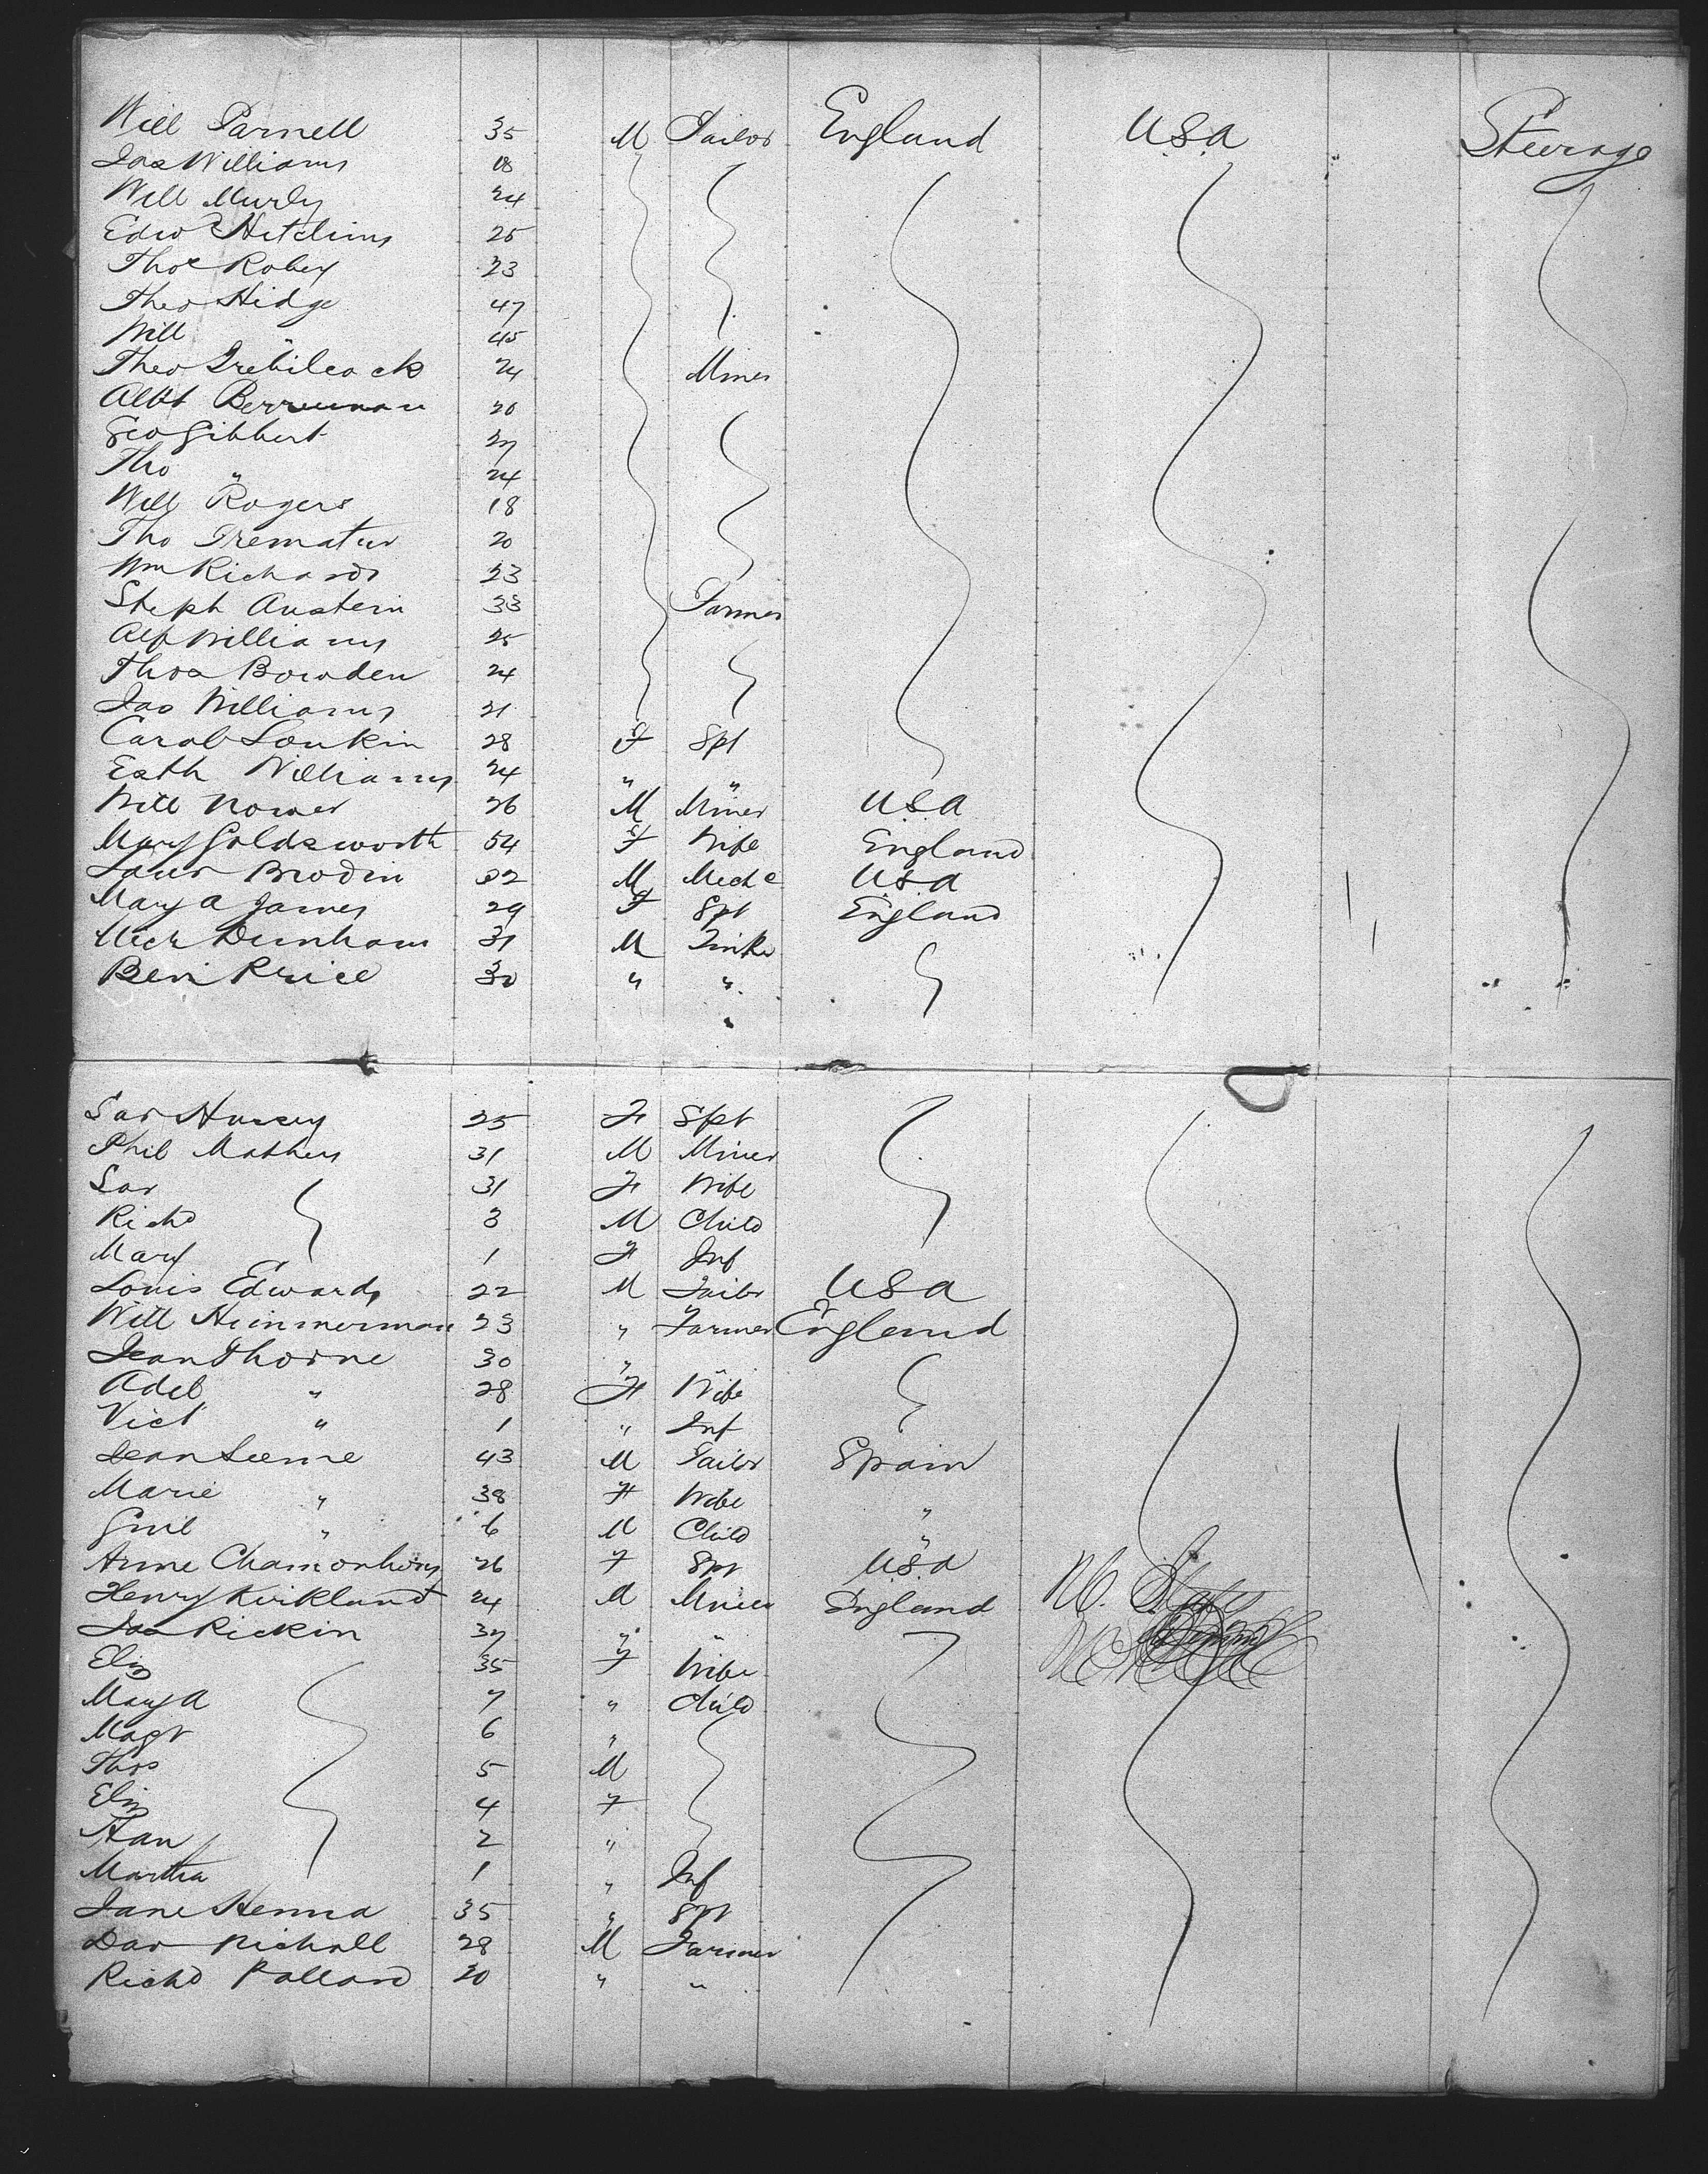 Will Parnell 35 M Tailor England USA Steerage
Jas Williams 18 "
Will Murly 24
Edwd Hitchins 25
Thos Robey 23
Theo Hidge 47
Will " 45
Theo Trebilcock 24 Miner
Albt Berryman 20
Geo Gibbert 27
Tho " 24
Will Rogers 18
Tho 20
Wm Richards 23
Steph Austein 33 Farmer
Alf Williams 25
Thos Bowden 24
Jas Williams 21
Carol Lonkin 28 F Spt
Esth Williams 24 " "
Will Nower 26 M Miner USA
Mary Goldsworth 54 F Wife England
Brodin 32 M Mech USA
Mary A James 29 F Spt England
Dunham 31 M
Ben Price 30 " "
Sar Hussey 25 F Spt
Phil Mathews 31 M Miner
Sar 31 F Wife
Richd 3 M Child
Mary 1 F Inf
Louis Edwards 22 M Tailor USA
Will Heimmerman 23 " Farmer England
Jean Thorne 30 " "
Adel " 28 F Wife
Vict " 1 " Inf
Jean 43 M Tailor Spain
Marie " 38 F Wife "
" 6 M Child "
Anne 26 F Spt USA
Henry Kirkland 24 M Miner England
Jas Rickin 37 " "
Eliz 35 F Wife
Mary A 7 " Child
Magt 6 "
Thos 5 M
Eliz 4 F
Han 2 "
Martha 1 " Inf
Jane Henna 35 " Spt
Dav Nicholl 28 M Farmer
Richd Pollard 20 " "